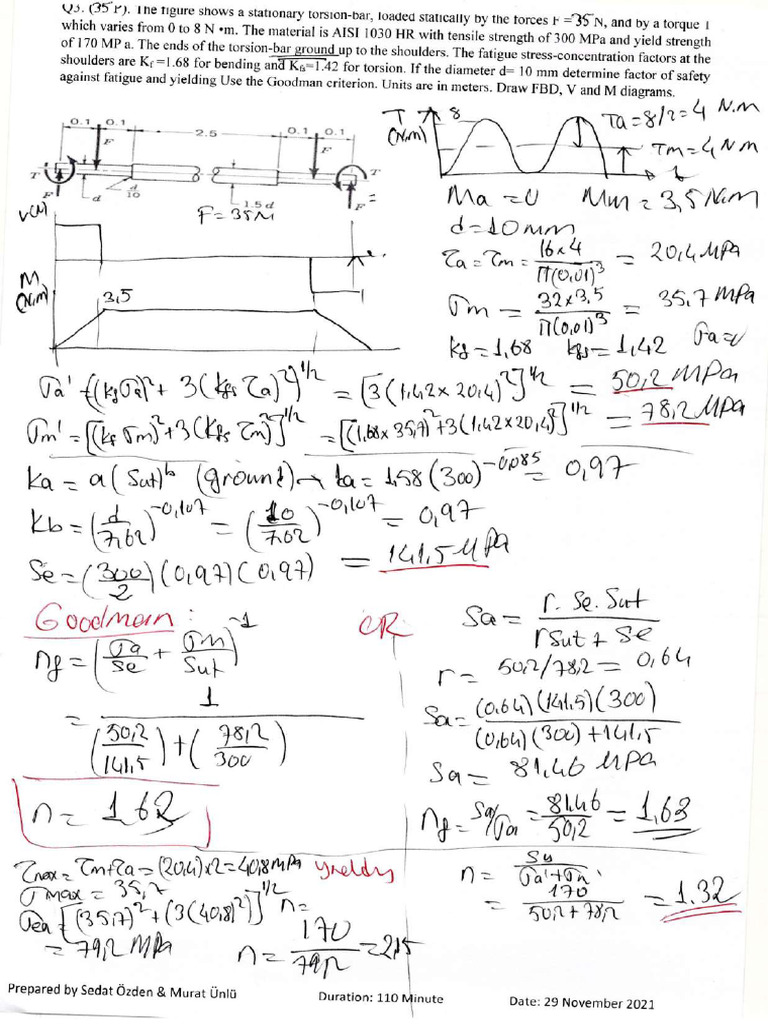 Q3. (35 P). The figure shows a stationary torsion-bar, loaded statically by the forces F =35 N, and by a torque T
which varies from 0 to 8 N •m. The material is AISI 1030 HR with tensile strength of 300 MPa and yield strength
of 170 MP a. The ends of the torsion-bar ground up to the shoulders. The fatigue stress-concentration factors at the
shoulders are Kf =1.68 for bending and Kfs=1.42 for torsion. If the diameter d= 10 mm determine factor of safety
against fatigue and yielding Use the Goodman criterion. Units are in meters. Draw FBD, V and M diagrams.
0.1 0.1 2.5 0.1 0.1
F F
T T
F d d/10 1.5 d F
F = 35N
V(N)
M
(N.m)
3,5
T
(N.m)
8
Ta = 8/2 = 4 N.m
Tm = 4 N m
t
Ma = 0 Mm = 3,5 N.m
d = 10 mm
τa = τm = 16x4 / π(0,01)³ = 20,4 MPa
σm = 32x3.5 / π(0,01)³ = 35,7 MPa
kf = 1,68 kfs = 1,42 σa = 0
σa' = [(kf σa)² + 3(kfs τa)²]^1/2 = [3(1,42 x 20,4)²]^1/2 = 50,2 MPa
σm' = [(kf σm)² + 3(kfs τm)²]^1/2 = [(1,68x 35,7)² + 3(1,42 x 20,4)²]^1/2 = 78,2 MPa
ka = a(Sut)^b (ground) → ka = 1,58 (300)^-0,085 = 0,97
kb = (d/7,62)^-0,107 = (10/7,62)^-0,107 = 0,97
Se = (300/2)(0,97)(0,97) = 141,5 MPa
Goodman :
nf = (σa/Se + σm/Sut)^-1
= 1 / (50,2/141,5) + (78,2/300)
n = 1,62
OR
Sa = r. Se. Sut / r Sut + Se
r = 50,2/78,2 = 0,64
Sa = (0,64)(141,5)(300) / (0,64)(300) + 141,5
Sa = 81,46 MPa
nf = Sa/σa = 81,46/50,2 = 1,63
τmax = τm + τa = (20,4)x2 = 40,8 MPa
σmax = 35,7
= [(35,7)² + (3(40,8)²)]^1/2
= 79,2 MPa
n =
n = 170/79,2 = 2,15
n = Sy / σa' + σm'
= 170 / 50,2 + 78,2 = 1.32
Prepared by Sedat Özden & Murat Ünlü Duration: 110 Minute Date: 29 November 2021